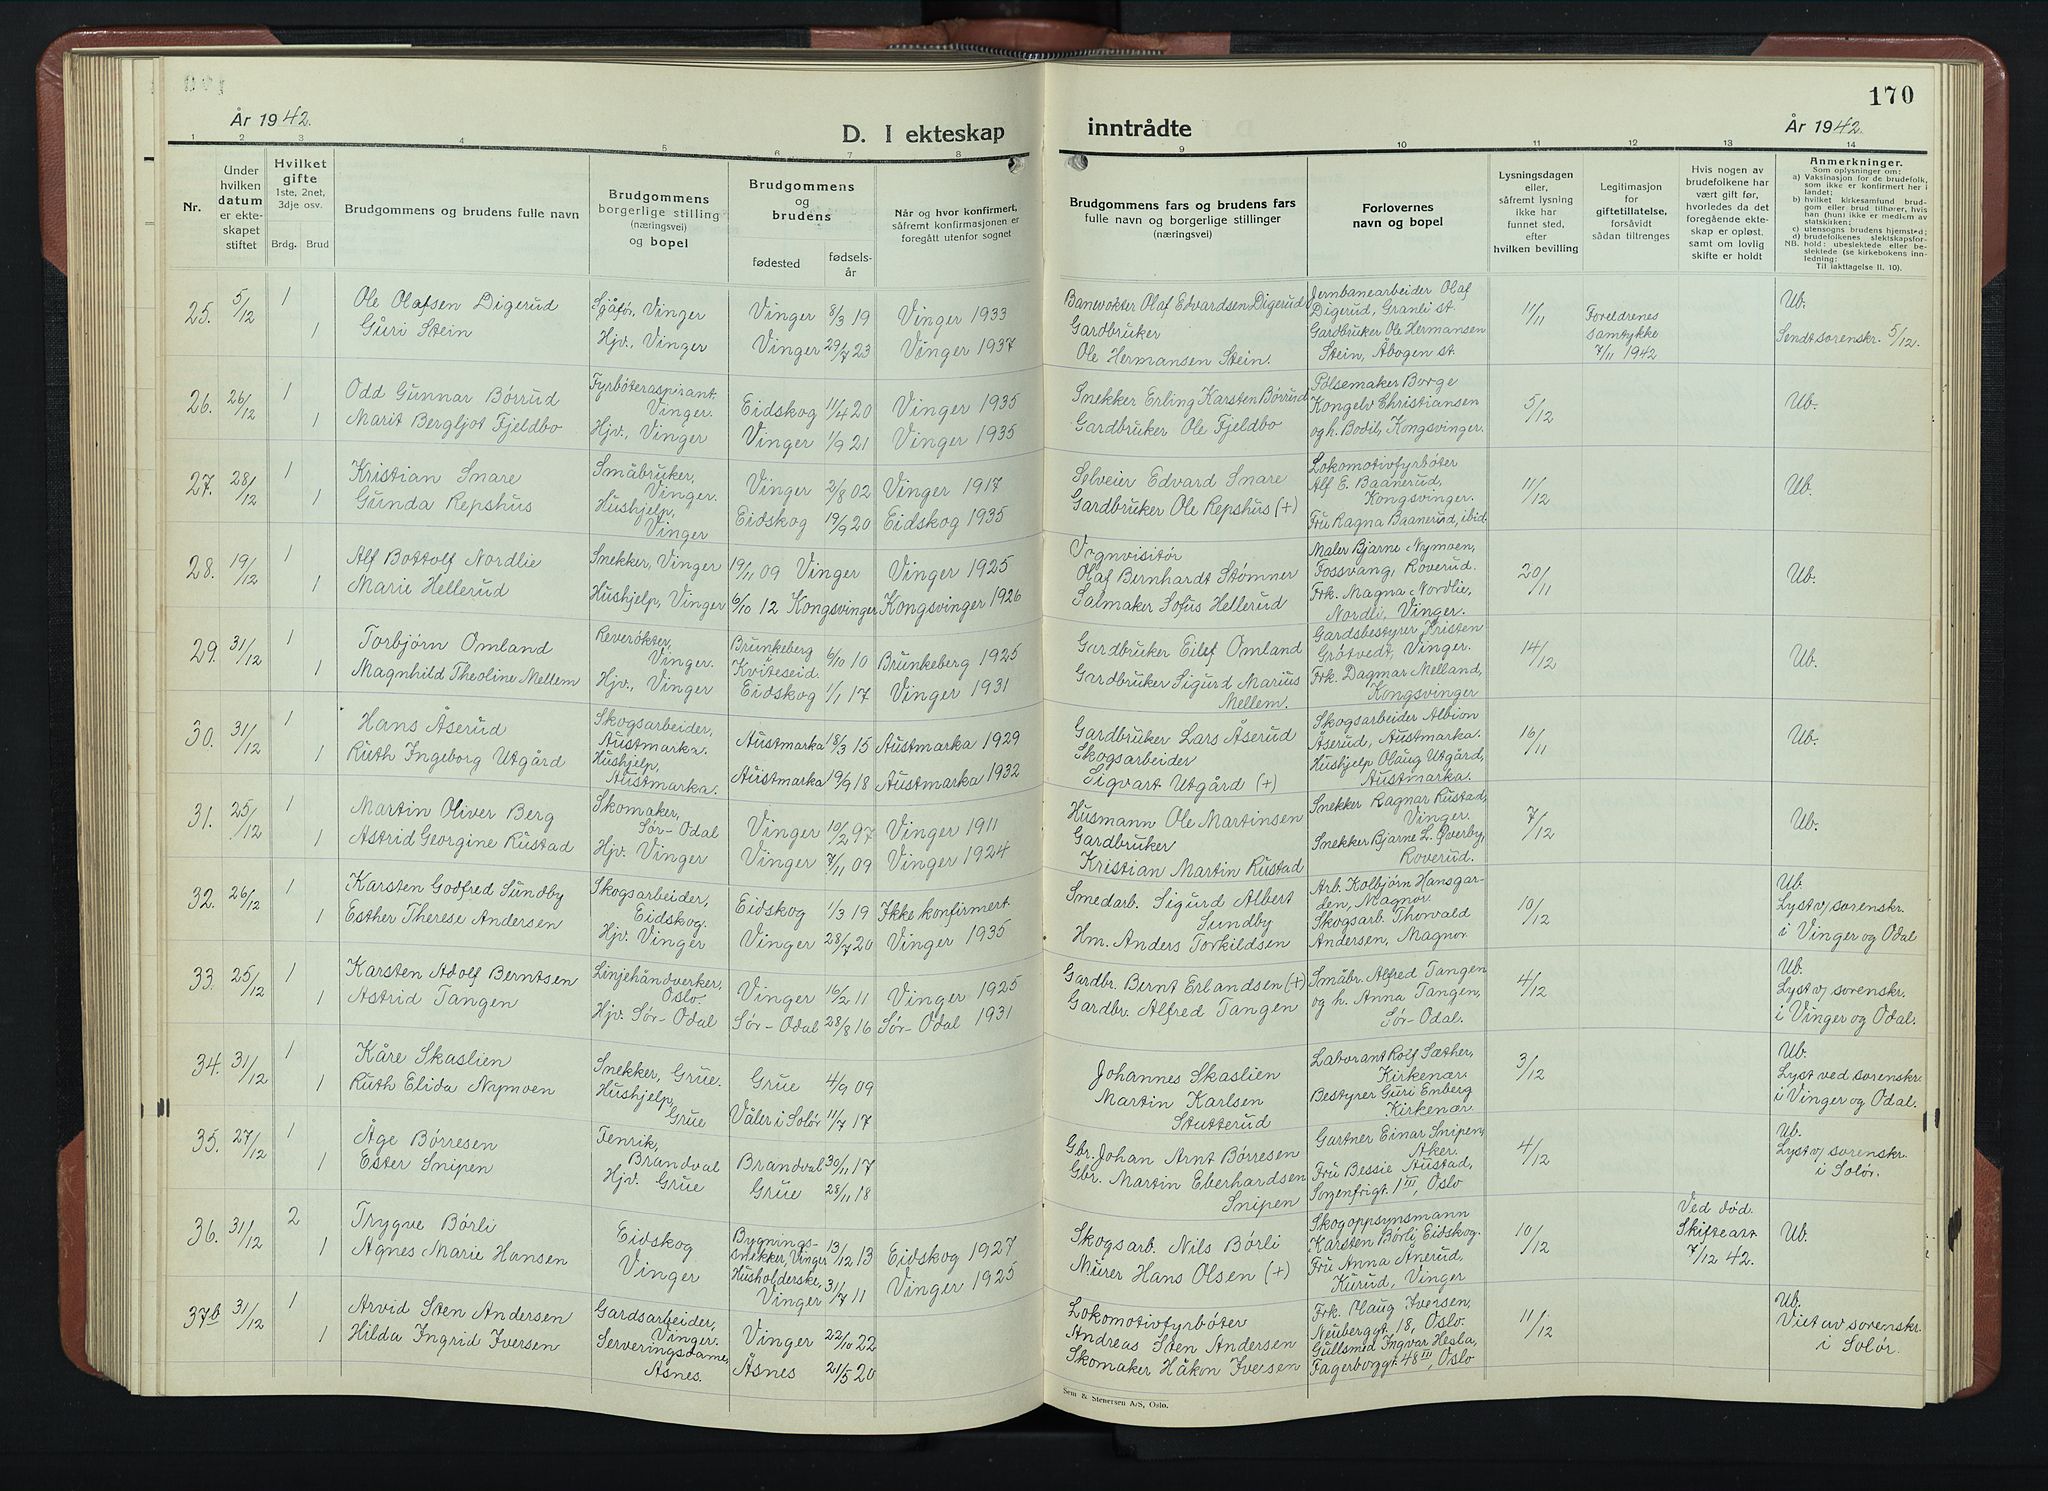 År 1942.
D. I ekteskap
1 2 3 4 5 6 7 8
Nr.
Under hvilken datum er ekteskapet stiftet
Hvilket gifte
1ste, 2net, 3dje osv.
Brdg. Brud
Brudgommens og brudens fulle navn
Brudgommens borgerlige stilling (næringsvei) og bopel
Brudgommens og brudens
fødested
fødselsår
Når og hvor konfirmert, såfremt konfirmasjonen er foregått utenfor sognet
170
inntrådte
År 1942.
9 10 11 12 13 14
Brudgommens fars og brudens fars fulle navn og borgerlige stillinger (næringsvei)
Forlovernes navn og bopel
Lysningsdagen eller, såfremt lysning ikke har funnet sted, efter hvilken bevilling
Legitimasjon for giftetillatelse, forsåvidt sådan tiltrenges
Hvis nogen av brudefolkene har vært gift før, hvorledes da det foregående ekteskap er opløst, samt om lovlig skifte er holdt
Anmerkninger.
Som oplysninger om:
a) Vaksinasjon for de brudefolk, som ikke er konfirmert her i landet;
b) hvilket kirkesamfund brudgom eller brud tilhører, hvis han (hun) ikke er medlem av statskirken;
c) utensogns brudens hjemsted;
d) brudefolkenes slektskapsforhold: ubeslektede eller beslektede (se kirkebokens innledning;
NB.
Til iakttagelse II. 10).
25. 5/12 1 Ole Olafsen Digerud Sjåfør, Vinger Vinger 8/3 19 Vinger 1933
1 Guri Stein Hjv., Vinger Vinger 29/7 23 Vinger 1937
Banevokter Olaf Edvardsen Digerud
Gardbruker
Ole Hermansen Stein.
Jernbanearbeider Olaf
Digerud, Granli st.
Gardbruker Ole Hermansen
Stein, Åbogen st.
11/11
Foreldrenes
samtykke
7/11 1942
Ub.
Sendt sorenskr. 5/12.
26. 26/12 1 Odd Gunnar Børrud Fyrbøteraspirant.
Vinger. Eidskog 11/4 20 Vinger 1935
1 Marit Bergljot Fjeldbo Hjv., Vinger Vinger 1/9 21 Vinger 1935
Snekker Erling Karsten Børrud
Gardbruker Ole Fjeldbo
Pølsemaker Borge
Kongelv Christiansen
og h. Bodil, Kongsvinger.
5/12
Ub.
27. 28/12 1 Kristian Snare Småbruker,
Vinger. Vinger 2/8 02 Vinger 1917
1 Gunda Repshus Hushjelp,
Vinger Eidskog 19/9 20 Eidskog 1935
Selveier Edvard Snare
Gardbruker Ole Repshus (+)
Lokomotivfyrbøter
Alf E. Baanerud,
Kongsvinger.
Fru Ragna Baanerud, ibid.
11/12
Ub.
28. 19/12 1 Alf Bottolf Nordlie Snekker, Vinger 19/11 09 Vinger Vinger 1925
1 Marie Hellerud Hushjelp, Vinger 6/10 12 Kongsvinger Kongsvinger 1926
Vognvisitør
Olaf Bernhardt Stømner
Salmaker Sofus Hellerud
Maler Bjarne Nymoen,
Fossvang, Roverud.
Frk. Magna Nordlie,
Nordli, Vinger.
20/11
Ub.
29. 31/12 1 Torbjørn Omland Reverøkter,
Vinger. Brunkeberg
Kviteseid. 6/10 10 Brunkeberg 1925
1 Magnhild Theoline Mellem Hjv., Vinger Eidskog 1/1 17 Vinger 1931
Gardbruker Eilef Omland
Gardbruker Sigurd Marius
Mellem.
Gardsbestyrer Kristen
Grøtvedt, Vinger.
Frk. Dagmar Melland,
Kongsvinger
14/12
Ub.
30. 31/12 1 Hans Åserud Skogsarbeider,
Austmarka. Austmarka 18/3 15 Austmarka 1929
1 Ruth Ingeborg Utgård Hushjelp,
Austmarka. Austmarka 19/9 18 Austmarka 1932
Gardbruker Lars Åserud
Skogsarbeider
Sigvart Utgård (+)
Skogsarbeider Albion
Åserud, Austmarka.
Hushjelp Olaug Utgård,
Austmarka.
16/11
Ub.
31. 25/12 1 Martin Oliver Berg Skomaker,
Sør-Odal Vinger 10/2 97 Vinger 1911
1 Astrid Georgine Rustad Hjv. Vinger Vinger 7/11 09 Vinger 1924
Husmann Ole Martinsen
Gardbruker
Kristian Martin Rustad
Snekker Ragnar Rustad,
Vinger.
Snekker Bjarne L. Øverby,
Roverud.
7/12
Ub.
32. 26/12 1 Karsten Godfred Sundby Skogsarbeider,
Eidskog. Eidskog 1/3 19 Ikke konfirmert.
1 Esther Therese Andersen Hjv. Vinger Vinger 28/7 20 Vinger 1935
Smedarb. Sigurd Albert
Sundby
Hm. Anders Torkildsen
Arb. Kolbjørn Hansgar-
den, Magnor.
Skogsarb. Thorvald
Andersen, Magnor.
10/12
Ub.
Lyst v/ sorenskr.
i Vinger og Odal
33. 25/12 1 Karsten Adolf Berntsen Linjehåndverker,
Oslo. Vinger 16/2 11 Vinger 1925
1 Astrid Tangen Hjv. Sør-Odal Sør-Odal 28/8 16 Sør-Odal 1931
Gardbr. Bernt Erlandsen (+)
Gardbr. Alfred Tangen
Småbr. Alfred Tangen
og h. Anna Tangen,
Sør-Odal.
4/12
Ub.
Lyst v/ sorenskr.
i Vinger og Odal.
34. 31/12 1 Kåre Skaslien Snekker, Grue. Grue 4/9 09
1 Ruth Elida Nymoen Hushjelp,
Grue Våler i Solør 11/7 17
Johannes Skaslien
Martin Karlsen
Stutterud
Laborant Rolf Sæther,
Kirkenær.
Bestyrer Guri Enberg
Kirkenær
3/12
Ub.
Lyst ved sorenskr.
i Vinger og Odal.
35. 27/12 1 Åge Børresen Fenrik,
Brandval Brandval 30/11 17
1 Ester Snipen Hjv. Grue Grue 28/11 18
Gbr. Johan Arnt Børresen
Gbr. Martin Eberhardsen
Snipen
Gartner Einar Snipen,
Aker.
Fru Bessie Austad,
Sorgenfrigt. 1 III, Oslo
4/12
Ub.
Lyst v/ sorenskr.
i Solør.
36. 31/12 2 Trygve Børli Eidskog Bygnings-
snekker, Vinger 13/12 13 Eidskog 1927
1 Agnes Marie Hansen Vinger Husholderske,
Vinger 31/7 11 Vinger 1925
Skogsarb. Nils Børli
Murer Hans Olsen (+)
Skogoppsynsmann
Karsten Børli, Eidskog.
Fru Anna Ånerud,
Kurud, Vinger
10/12
Ved død.
Skifteatt
7/12 42.
Ub.
37b 31/12 1 Arvid Sten Andersen Gardsarbeider,
Vinger. Vinger 22/10 22
1 Hilda Ingrid Iversen Serveringsdame,
Åsnes. Åsnes 21/5 20
Lokomotivfyrbøter
Andreas Sten Andersen
Skomaker Håkon Iversen
Frk. Olaug Iversen,
Neuberggt. 18, Oslo.
Gullsmed Ingvar Hegla,
Fagerborggt. 48 III, Oslo
11/12
Ub.
Viet av sorenskr.
i Solør.
Sem & Stenersen A/S, Oslo.